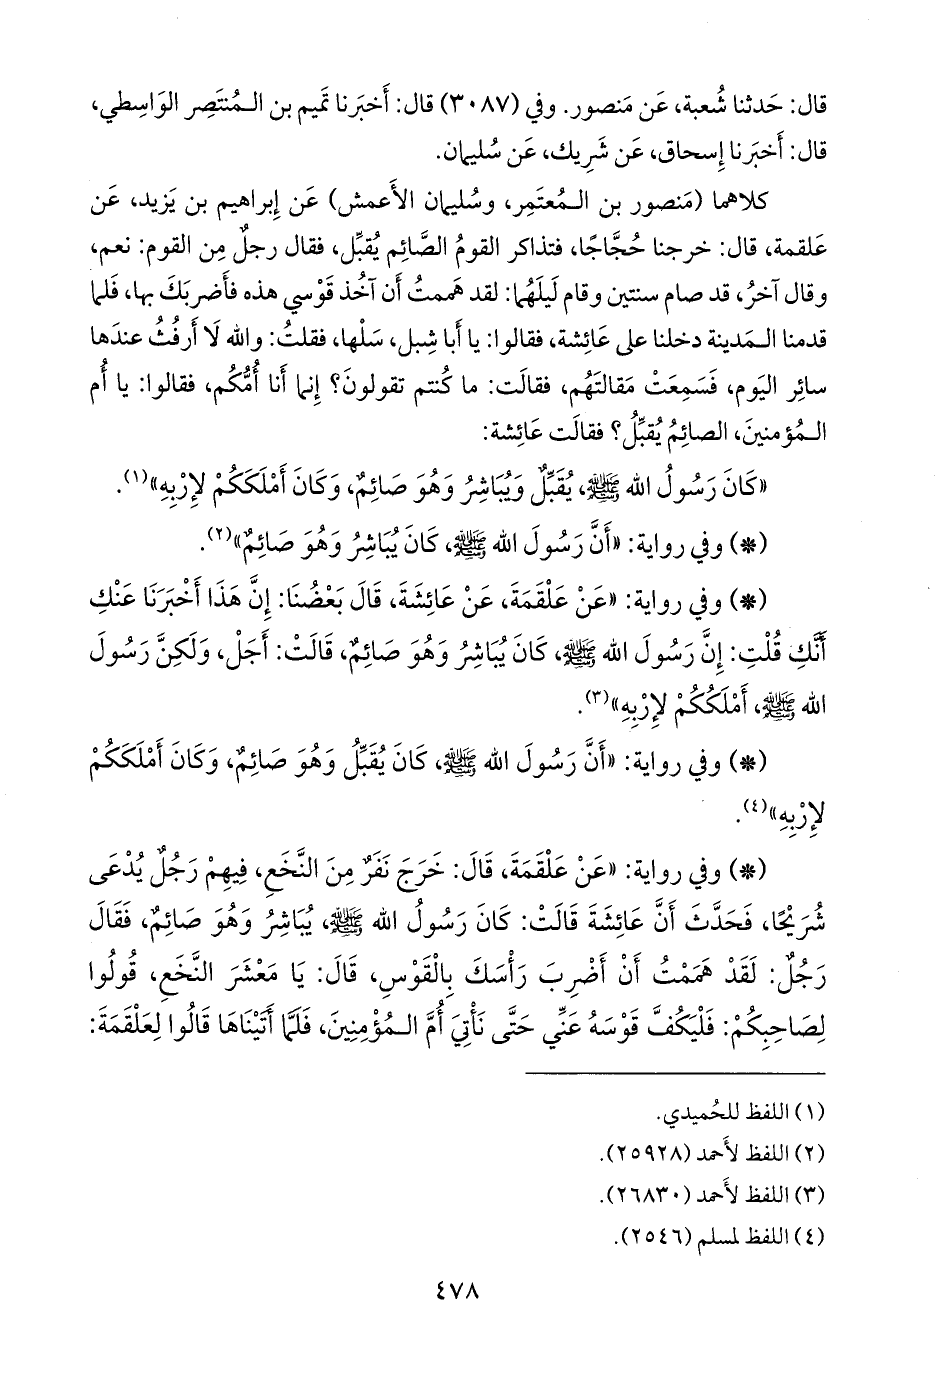 قال: حَدثنا شُعبة، عَن مَنصور. وفي (٣٠٨٧) قال: أَخبَرنا تَميم بن الـمُنتَصِر الوَاسِطي،
قال: أَخبَرنا إِسحاق، عَن شَرِيك، عَن سُليمان.
كلاهما (مَنصور بن الـمُعتَمِر، وسُليمان الأَعمش) عَن إِبراهيم بن يَزيد، عَن
عَلقمة، قال: خرجنا حُجَّاجًا، فتذاكر القومُ الصَّائِم يُقبِّل، فقال رجلٌ مِن القوم: نعم،
وقال آخرُ، قد صام سنتين وقام لَيلَهُما: لقد هَممتُ أَن آخُذ قَوْسي هذه فأَضربَكَ بها، فلما
قدمنا الـمَدينة دخلنا على عَائِشة، فقالوا: يا أَبا شِبل، سَلْها، فقلتُ: والله لَا أَرفُثُ عندَها
سائِر اليَوم، فَسَمِعَتْ مَقالتَهُم، فقالَت: ما كُنتم تقولونَ؟ إِنما أَنا أُمُّكُم، فقالوا: يا أُم
الـمُؤمنينَ، الصائِمُ يُقبِّلُ؟ فقالَت عَائِشة:
«كَانَ رَسُولُ الله ﷺ، يُقَبِّلٌ وَيُبَاشِرُ وَهُوَ صَائِمٌ، وَكَانَ أَمْلَكَكُمْ لِإِرْبِهِ»(١).
(*) وفي رواية: «أَنَّ رَسُولَ الله ﷺ، كَانَ يُبَاشِرُ وَهُوَ صَائِمٌ»(٢).
(*) وفي رواية: «عَنْ عَلْقَمَةَ، عَنْ عَائِشَةَ، قَالَ بَعْضُنَا: إِنَّ هَذَا أَخْبَرَنَا عَنْكِ
أَنَّكِ قُلْتِ: إِنَّ رَسُولَ الله ﷺ، كَانَ يُبَاشِرُ وَهُوَ صَائِمٌ، قَالَتْ: أَجَلْ، وَلَكِنَّ رَسُولَ
الله ﷺ، أَمْلَكَكُمْ لِإِرْبِهِ»(٣).
(*) وفي رواية: «أَنَّ رَسُولَ الله ﷺ، كَانَ يُقَبِّلُ وَهُوَ صَائِمٌ، وَكَانَ أَمْلَكَكُمْ
لِإِرْبِهِ»(٤).
(*) وفي رواية: «عَنْ عَلْقَمَةَ، قَالَ: خَرَجَ نَفَرٌ مِنَ النَّخَعِ، فِيهِمْ رَجُلٌ يُدْعَى
شُرَيْحًا، فَحَدَّثَ أَنَّ عَائِشَةَ قَالَتْ: كَانَ رَسُولُ الله ﷺ، يُبَاشِرُ وَهُوَ صَائِمٌ، فَقَالَ
رَجُلٌ: لَقَدْ هَمَمْتُ أَنْ أَضْرِبَ رَأْسَكَ بِالْقَوْسِ، قَالَ: يَا مَعْشَرَ النَّخَعِ، قُولُوا
لِصَاحِبِكُمْ: فَلْيَكُفَّ قَوْسَهُ عَنِّي حَتَّى نَأْتِيَ أُمَّ الـمُؤْمِنِينَ، فَلَمَّا أَتَيْنَاهَا قَالُوا لِعَلْقَمَةَ:
(١) اللفظ للحُميدي.
(٢) اللفظ لأَحمد (٢٥٩٢٨).
(٣) اللفظ لأَحمد (٢٦٨٣٠).
(٤) اللفظ لمسلم (٢٥٤٦).
٤٧٨